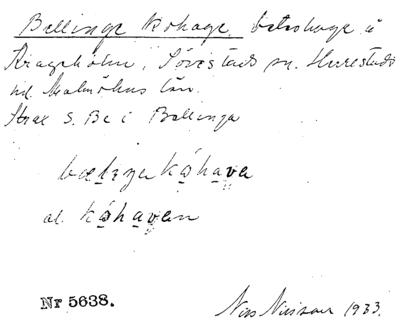 Bellinge Kohage, beteshage å
Krageholm, Sövestads sn. Herrestads
hd. Malmöhus län.
Strax S. Bc i Bellinga
bæliŋa kåhava
al. kåhaven
Nr 5638.
Nils Nilsson 1933.